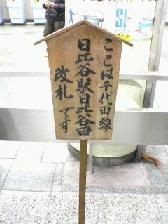 ここは千代田線
日比谷駅日比谷口
改札です